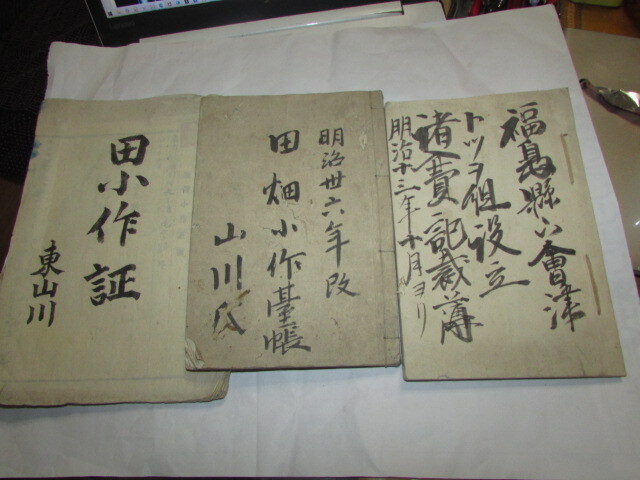 田小作証
東山川
明治卅六年改
田畑小作基帳
山川氏
福島縣
會津
組設立
諸費記載簿
明治十三年十月ヨリ